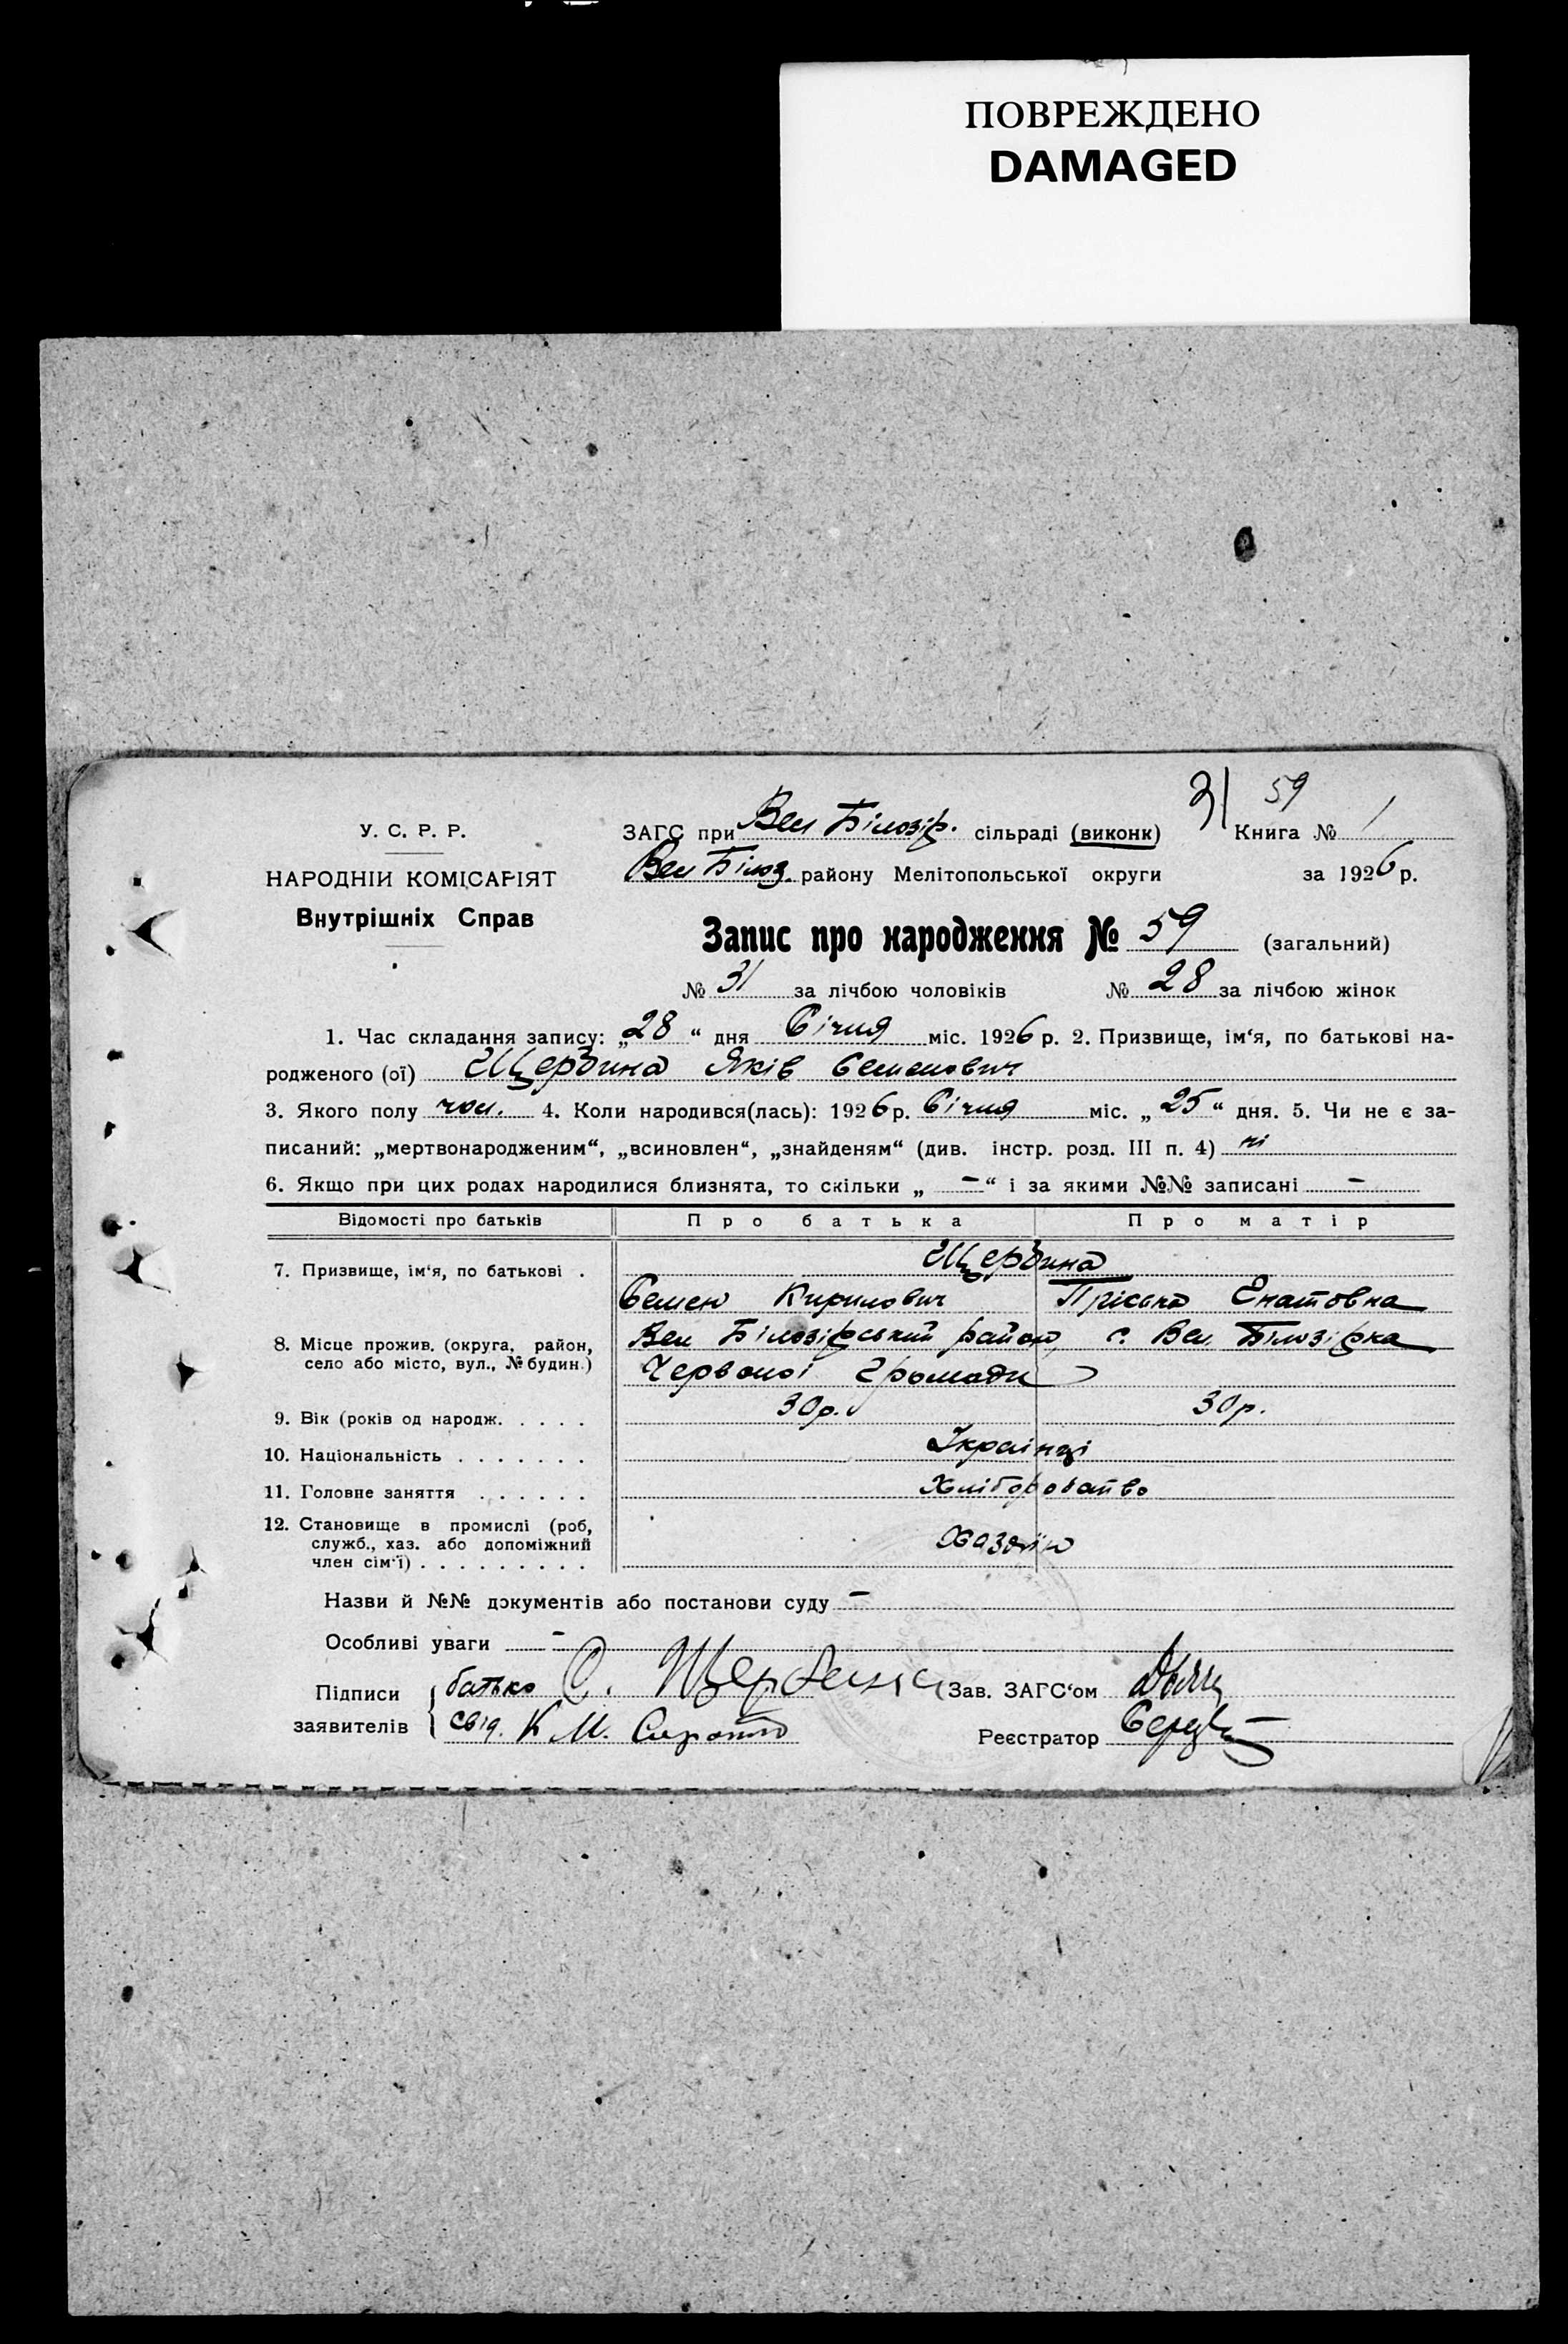 ПОВРЕЖДЕНО
DAMAGED
31 59
У. С. Р. Р.
ЗАГС при Вел Білозір. сільраді (виконк) Книга № 1
НАРОДНІЙ КОМІСАРІЯТ
Внутрішніх Справ
Вел Білоз. району Мелітопольської округи за 1926 р.
Запис про народження № 59 (загальний)
№ 31 за лічбою чоловіків № 28 за лічбою жінок
1. Час складання запису: „28“ дня Січня міс. 1926 р. 2. Призвище, ім‘я, по батькові на-
родженого (ої) Щербина Яків Семенович
3. Якого полу чол. 4. Коли народився(лась): 1926 р. Січня міс. „25“ дня. 5. Чи не є за-
писаний: „мертвонародженим“, „всиновлен“, „знайденям“ (див. інстр. розд. III п. 4) ні
6. Якщо при цих родах народилися близнята, то скільки „ – “ і за якими №№ записані –
Відомості про батьків Про батька Про матір
7. Призвище, ім‘я, по батькові . Щербина
Семен Кирилович Пріська Гнатовна
8. Місце прожив. (округа, район, Вел Білозірський район, с. Вел. Білозірка
село або місто, вул., № будин.) Червоної Громади
9. Вік (років од народж. . . . . 30 р. 30 р.
10. Національність . . . . . . . Українці
11. Головне заняття . . . . . . Хліборобство
12. Становище в промислі (роб,
служб., хаз. або допоміжний Хазяїн
член сім‘ї) . . . . . . . . .
Назви й №№ документів або постанови суду –
Особливі уваги –
Підписи батько С. Щербина Зав. ЗАГС‘ом
заявителів свід. К М. Сирота Реєстратор